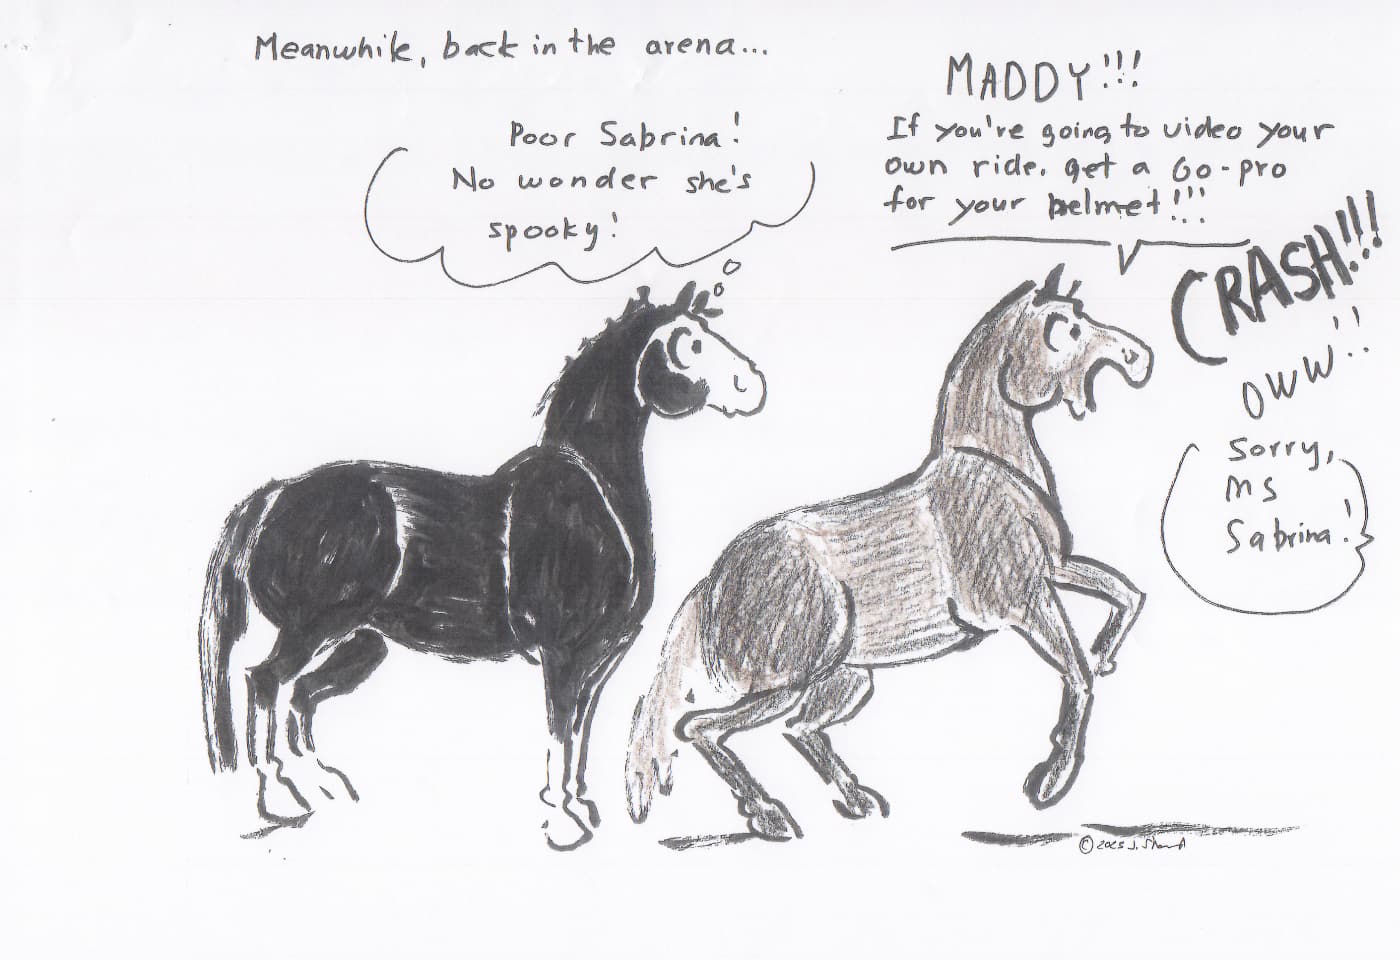 Meanwhile, back in the arena...
Poor Sabrina!
No wonder she's
spooky!
MADDY!!!
If you're going to video your
own ride, get a Go-pro
for your helmet!!!
CRASH!!!
OWW!!
Sorry,
MS
Sabrina!
© 2025 J.